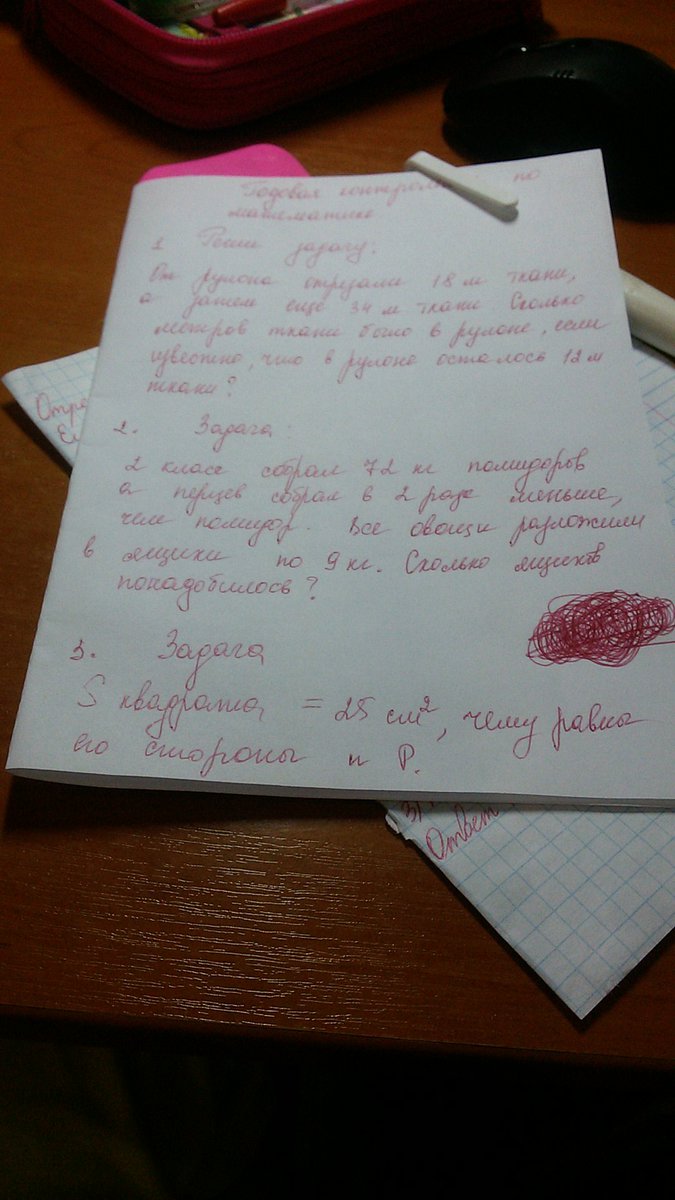 Годовая по
математике
1 Реши задачу:
От рулона отрезали 18 м ткани,
а затем еще 34 м ткани. Сколько
метров ткани было в рулоне, если
известно, что в рулоне осталось 12 м
ткани?
2. Задача:
2 класс собрал 72 кг помидоров
а перцев собрал в 2 раза меньше,
чем помидор. Все овощи разложили
в ящики по 9 кг. Сколько ящиков
понадобилось?
3. Задача
S квадрата = 25 см², чему равны
его стороны и P.
3)
Ответ